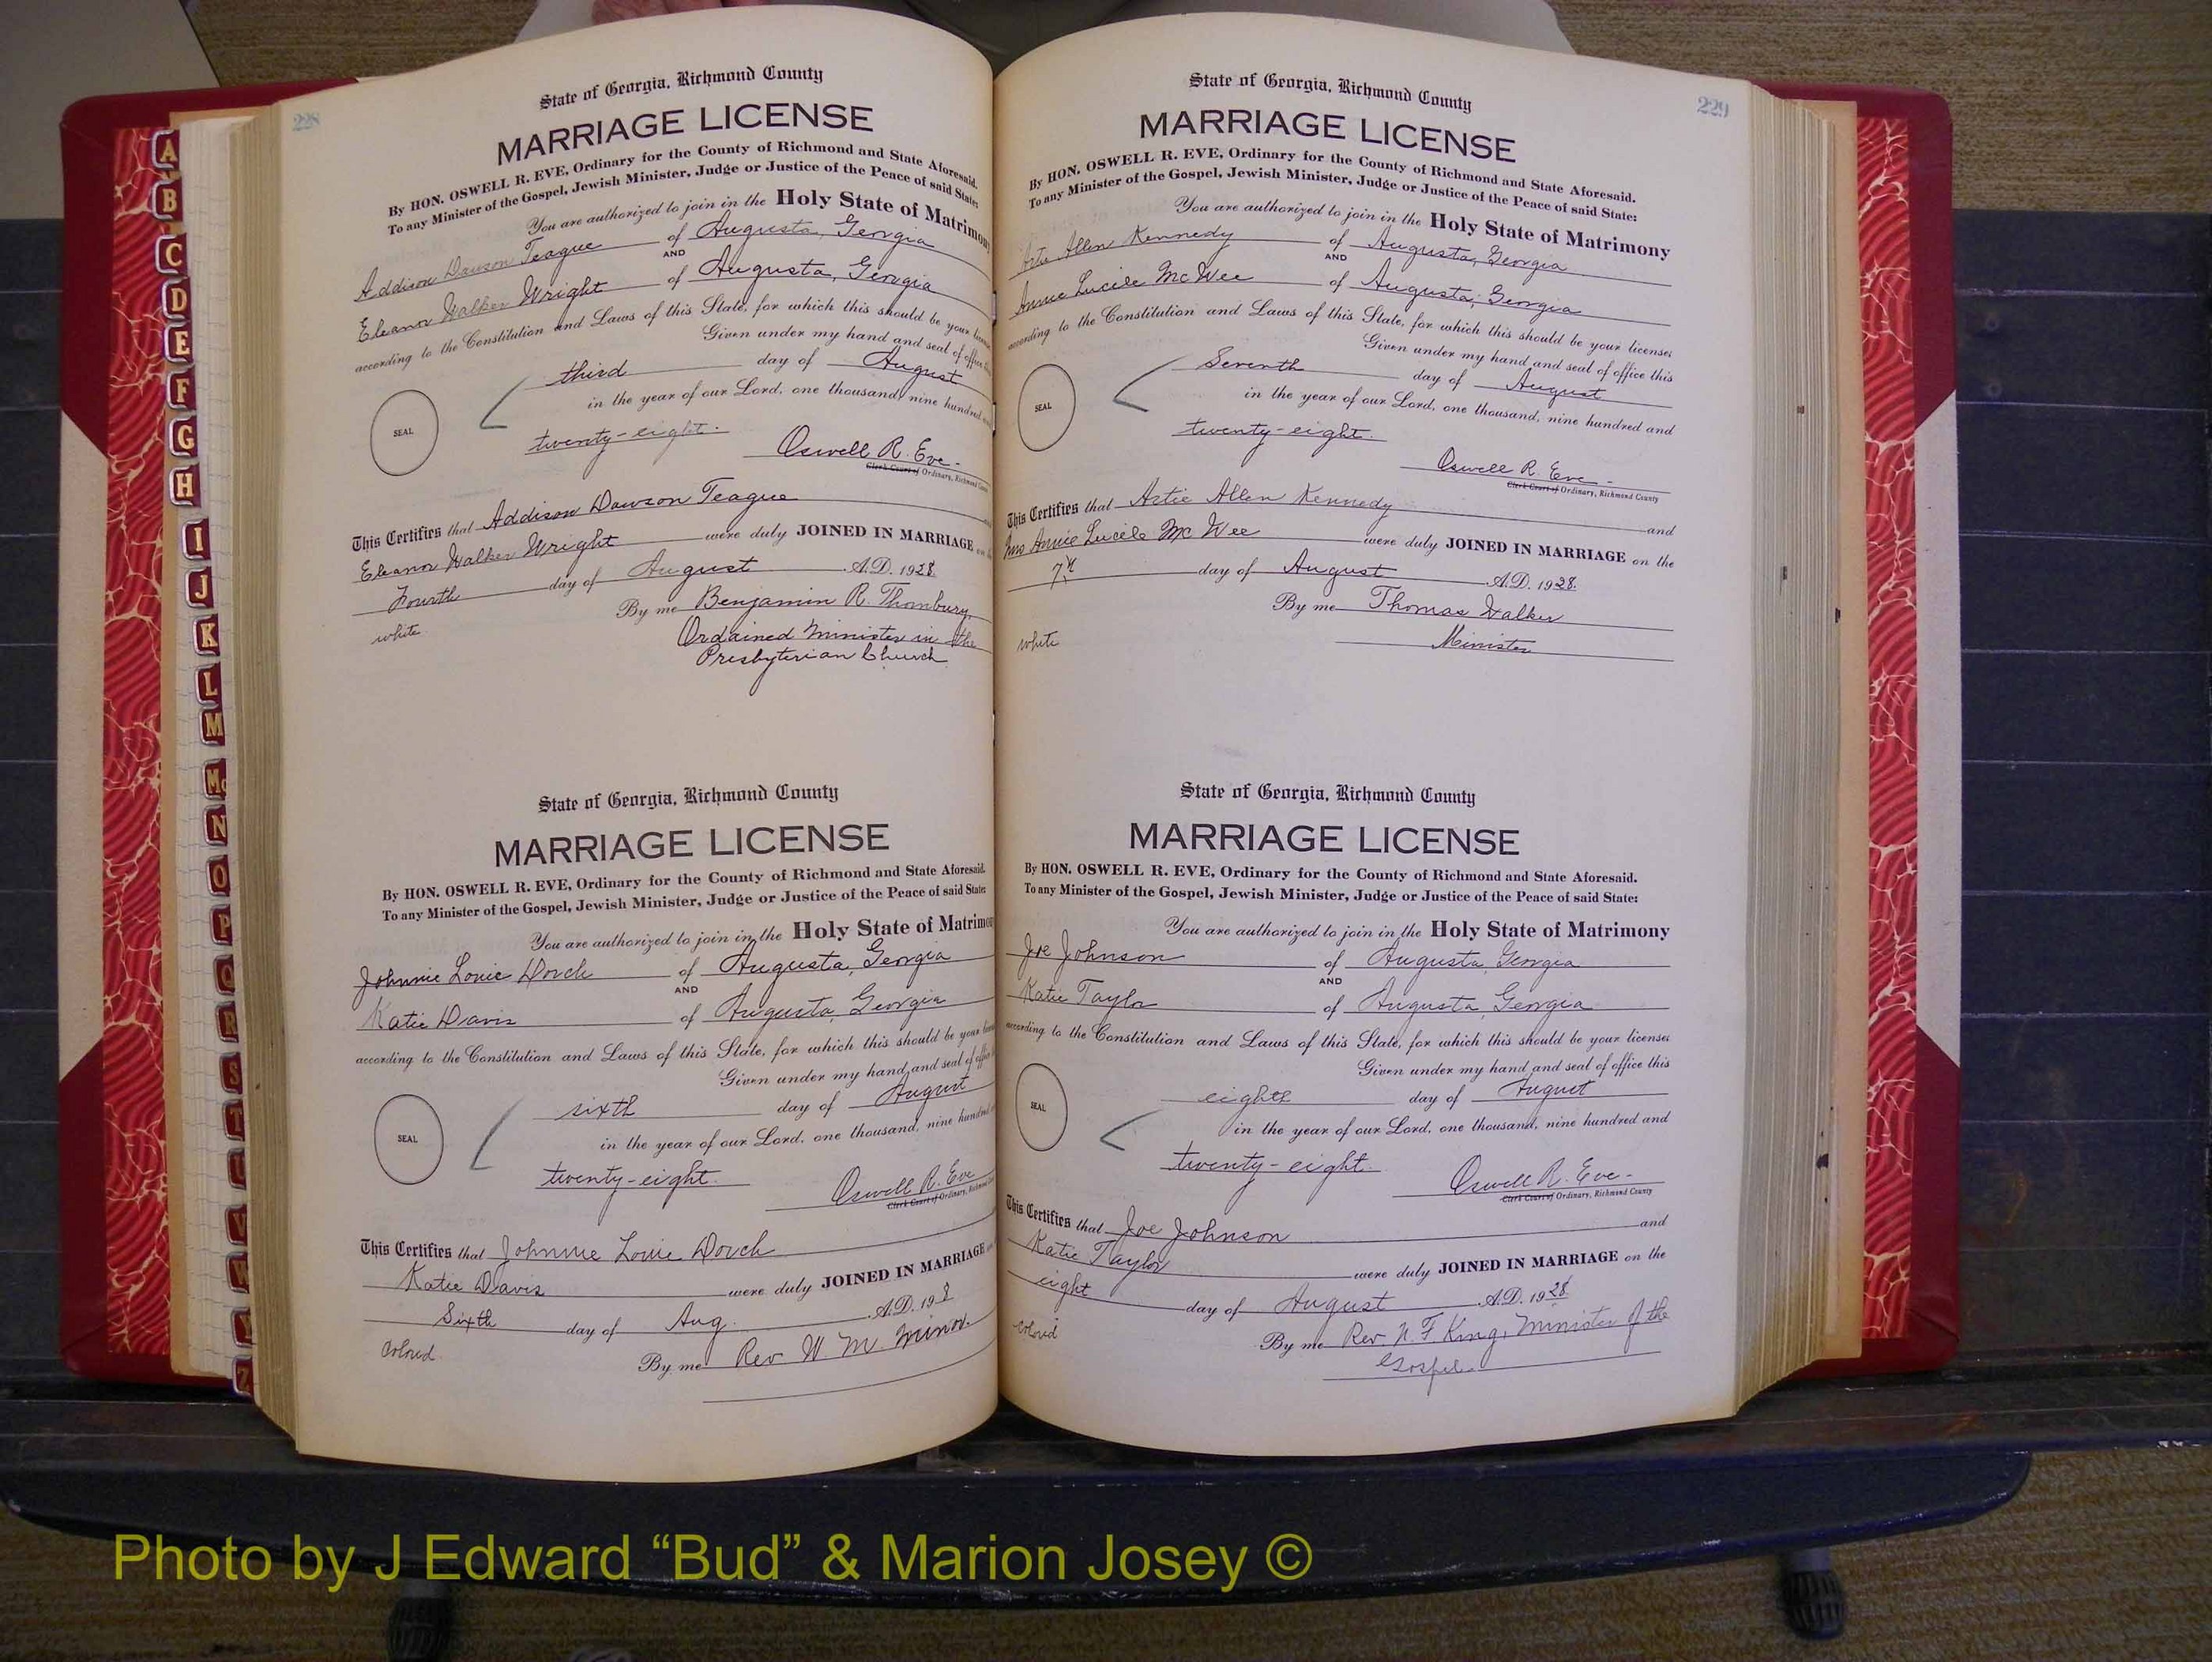 A
B
C
D
E
F
G
H
I
J
K
L
M
Mc
N
O
P
Q
R
S
T
U
V
W
Y
Z
228
State of Georgia, Richmond County
MARRIAGE LICENSE
By HON. OSWELL R. EVE, Ordinary for the County of Richmond and State Aforesaid.
To any Minister of the Gospel, Jewish Minister, Judge or Justice of the Peace of said State:
You are authorized to join in the Holy State of Matrimony
Addison Dawson Teague of Augusta, Georgia
AND
Eleanor Walker Wright of Augusta, Georgia
according to the Constitution and Laws of this State, for which this should be your
Given under my hand and seal of office
third day of August
SEAL
in the year of our Lord, one thousand, nine hundred
twenty-eight.
Oswell R. Eve-
Clerk Court of Ordinary, Richmond
This Certifies that Addison Dawson Teague
Eleanor Walker Wright were duly JOINED IN MARRIAGE on
Fourth day of August A.D. 1928.
By me Benjamin R. Thornbury,
white
Ordained Minister in the
Presbyterian Church
State of Georgia, Richmond County
MARRIAGE LICENSE
By HON. OSWELL R. EVE, Ordinary for the County of Richmond and State Aforesaid.
To any Minister of the Gospel, Jewish Minister, Judge or Justice of the Peace of said State:
You are authorized to join in the Holy State of Matrimo
Johnnie Louie Dorch of Augusta, Georgia
AND
Katie Davis of Augusta, Georgia
according to the Constitution and Laws of this State, for which this should be your
Given under my hand and seal of office
sixth day of August
SEAL
in the year of our Lord, one thousand, nine hundred
twenty-eight.
Oswell R. Eve
Clerk Court of Ordinary, Richmond
This Certifies that Johnnie Louie Dorch
Katie Davis were duly JOINED IN MARRIAGE
Sixth day of Aug. A.D. 19 8
Colored
By me Rev W M. Minor.
229
State of Georgia, Richmond County
MARRIAGE LICENSE
By HON. OSWELL R. EVE, Ordinary for the County of Richmond and State Aforesaid.
To any Minister of the Gospel, Jewish Minister, Judge or Justice of the Peace of said State:
You are authorized to join in the Holy State of Matrimony
Artie Allen Kennedy of Augusta, Georgia
AND
Annie Lucile McWee of Augusta, Georgia
according to the Constitution and Laws of this State, for which this should be your licenses
Given under my hand and seal of office this
Seventh day of August
SEAL
in the year of our Lord, one thousand, nine hundred and
twenty-eight.
Oswell R. Eve-
Clerk Court of Ordinary, Richmond County
This Certifies that Artie Allen Kennedy and
Annie Lucile Mc Wee were duly JOINED IN MARRIAGE on the
7th day of August A.D. 1928.
By me Thomas Walker
white
Minister
State of Georgia, Richmond County
MARRIAGE LICENSE
By HON. OSWELL R. EVE, Ordinary for the County of Richmond and State Aforesaid.
To any Minister of the Gospel, Jewish Minister, Judge or Justice of the Peace of said State:
You are authorized to join in the Holy State of Matrimony
Joe Johnson of Augusta, Georgia
AND
Katie Taylor of Augusta, Georgia
according to the Constitution and Laws of this State, for which this should be your licenses
Given under my hand and seal of office this
eighth day of August
SEAL
in the year of our Lord, one thousand, nine hundred and
twenty-eight.
Oswell R. Eve-
Clerk Court of Ordinary, Richmond County
This Certifies that Joe Johnson and
Katie Taylor were duly JOINED IN MARRIAGE on the
eight day of August A.D. 1928
Colored
By me Rev. N. F. King, Minister of the
Gospel.
Photo by J Edward “Bud” & Marion Josey ©